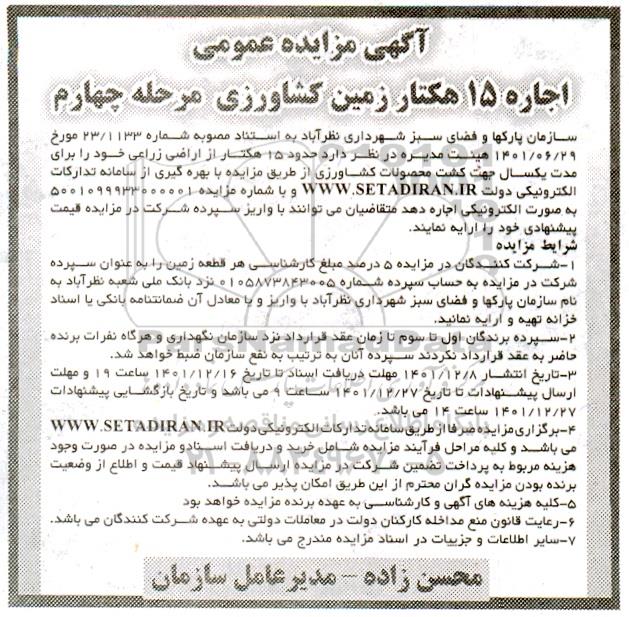 آگهی مزایده عمومی
اجاره ۱۵ هکتار زمین کشاورزی مرحله چهارم
سازمان پارکها و فضای سبز شهرداری نظرآباد به استناد مصوبه شماره ۲۳/۱۱۳۳ مورخ
۱۴۰۱/۰۶/۲۹ هیئت مدیره در نظر دارد حدود ۱۵ هکتار از اراضی زراعی خود را برای
مدت یکسال جهت کشت محصولات کشاورزی از طریق مزایده با بهره گیری از سامانه تدارکات
الکترونیکی دولت WWW.SETADIRAN.IR و با شماره مزایده ۵۰۰۱۰۹۹۹۳۳۰۰۰۰۰۱
به صورت الکترونیکی اجاره دهد متقاضیان می توانند با واریز سپرده شرکت در مزایده قیمت
پیشنهادی خود را ارایه نمایند.
شرایط مزایده
۱-شرکت کنندگان در مزایده ۵ درصد مبلغ کارشناسی هر قطعه زمین را به عنوان سپرده
شرکت در مزایده به حساب سپرده شماره ۰۱۰۵۸۷۳۸۴۳۰۰۵ نزد بانک ملی شعبه نظرآباد به
نام سازمان پارکها و فضای سبز شهرداری نظرآباد با واریز و با معادل آن ضمانتنامه بانکی یا اسناد
خزانه تهیه و ارایه نمائید.
۲-سپرده برندگان اول تا سوم تا زمان عقد قرارداد نزد سازمان نگهداری و هرگاه نفرات برنده
حاضر به عقد قرارداد نگردند سپرده آنان به ترتیب به نفع سازمان ضبط خواهد شد.
۳-تاریخ انتشار ۱۴۰۱/۱۲/۸ مهلت دریافت اسناد تا تاریخ ۱۴۰۱/۱۲/۱۶ ساعت ۱۹ و مهلت
ارسال پیشنهادات تا تاریخ ۱۴۰۱/۱۲/۲۷ ساعت ۹ می باشد و تاریخ بازگشایی پیشنهادات
۱۴۰۱/۱۲/۲۷ ساعت ۱۴ می باشد.
۴-برگزاری مزایده صرفا از طریق سامانه تدارکات الکترونیکی دولت WWW.SETADIRAN IR
می باشد و کلیه مراحل فرآیند مزایده شامل خرید و دریافت اسنادو مزایده در صورت وجود
هزینه مربوط به پرداخت تضمین شرکت در مزایده ارسال پیشنهاد قیمت و اطلاع از وضعیت
برنده بودن مزایده گران محترم از این طریق امکان پذیر می باشد.
۵-کلیه هزینه های آگهی و کارشناسی به عهده برنده مزایده خواهد بود
۶-رعایت قانون منع مداخله کارکنان دولت در معاملات دولتی به عهده شرکت کنندگان می باشد.
۷-سایر اطلاعات و جزییات در اسناد مزایده مندرج می باشد.
محسن زاده - مدیرعامل سازمان